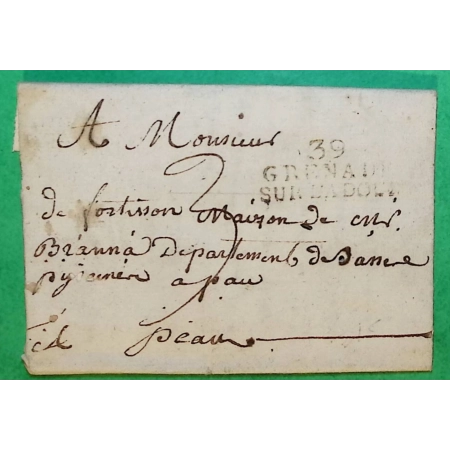 A Monsieur
39
GRENADE
SUR L'ADOUR
de fortisson Maizon de Mr.
Branna Departement de Basse
pyrenné a pau
a peau